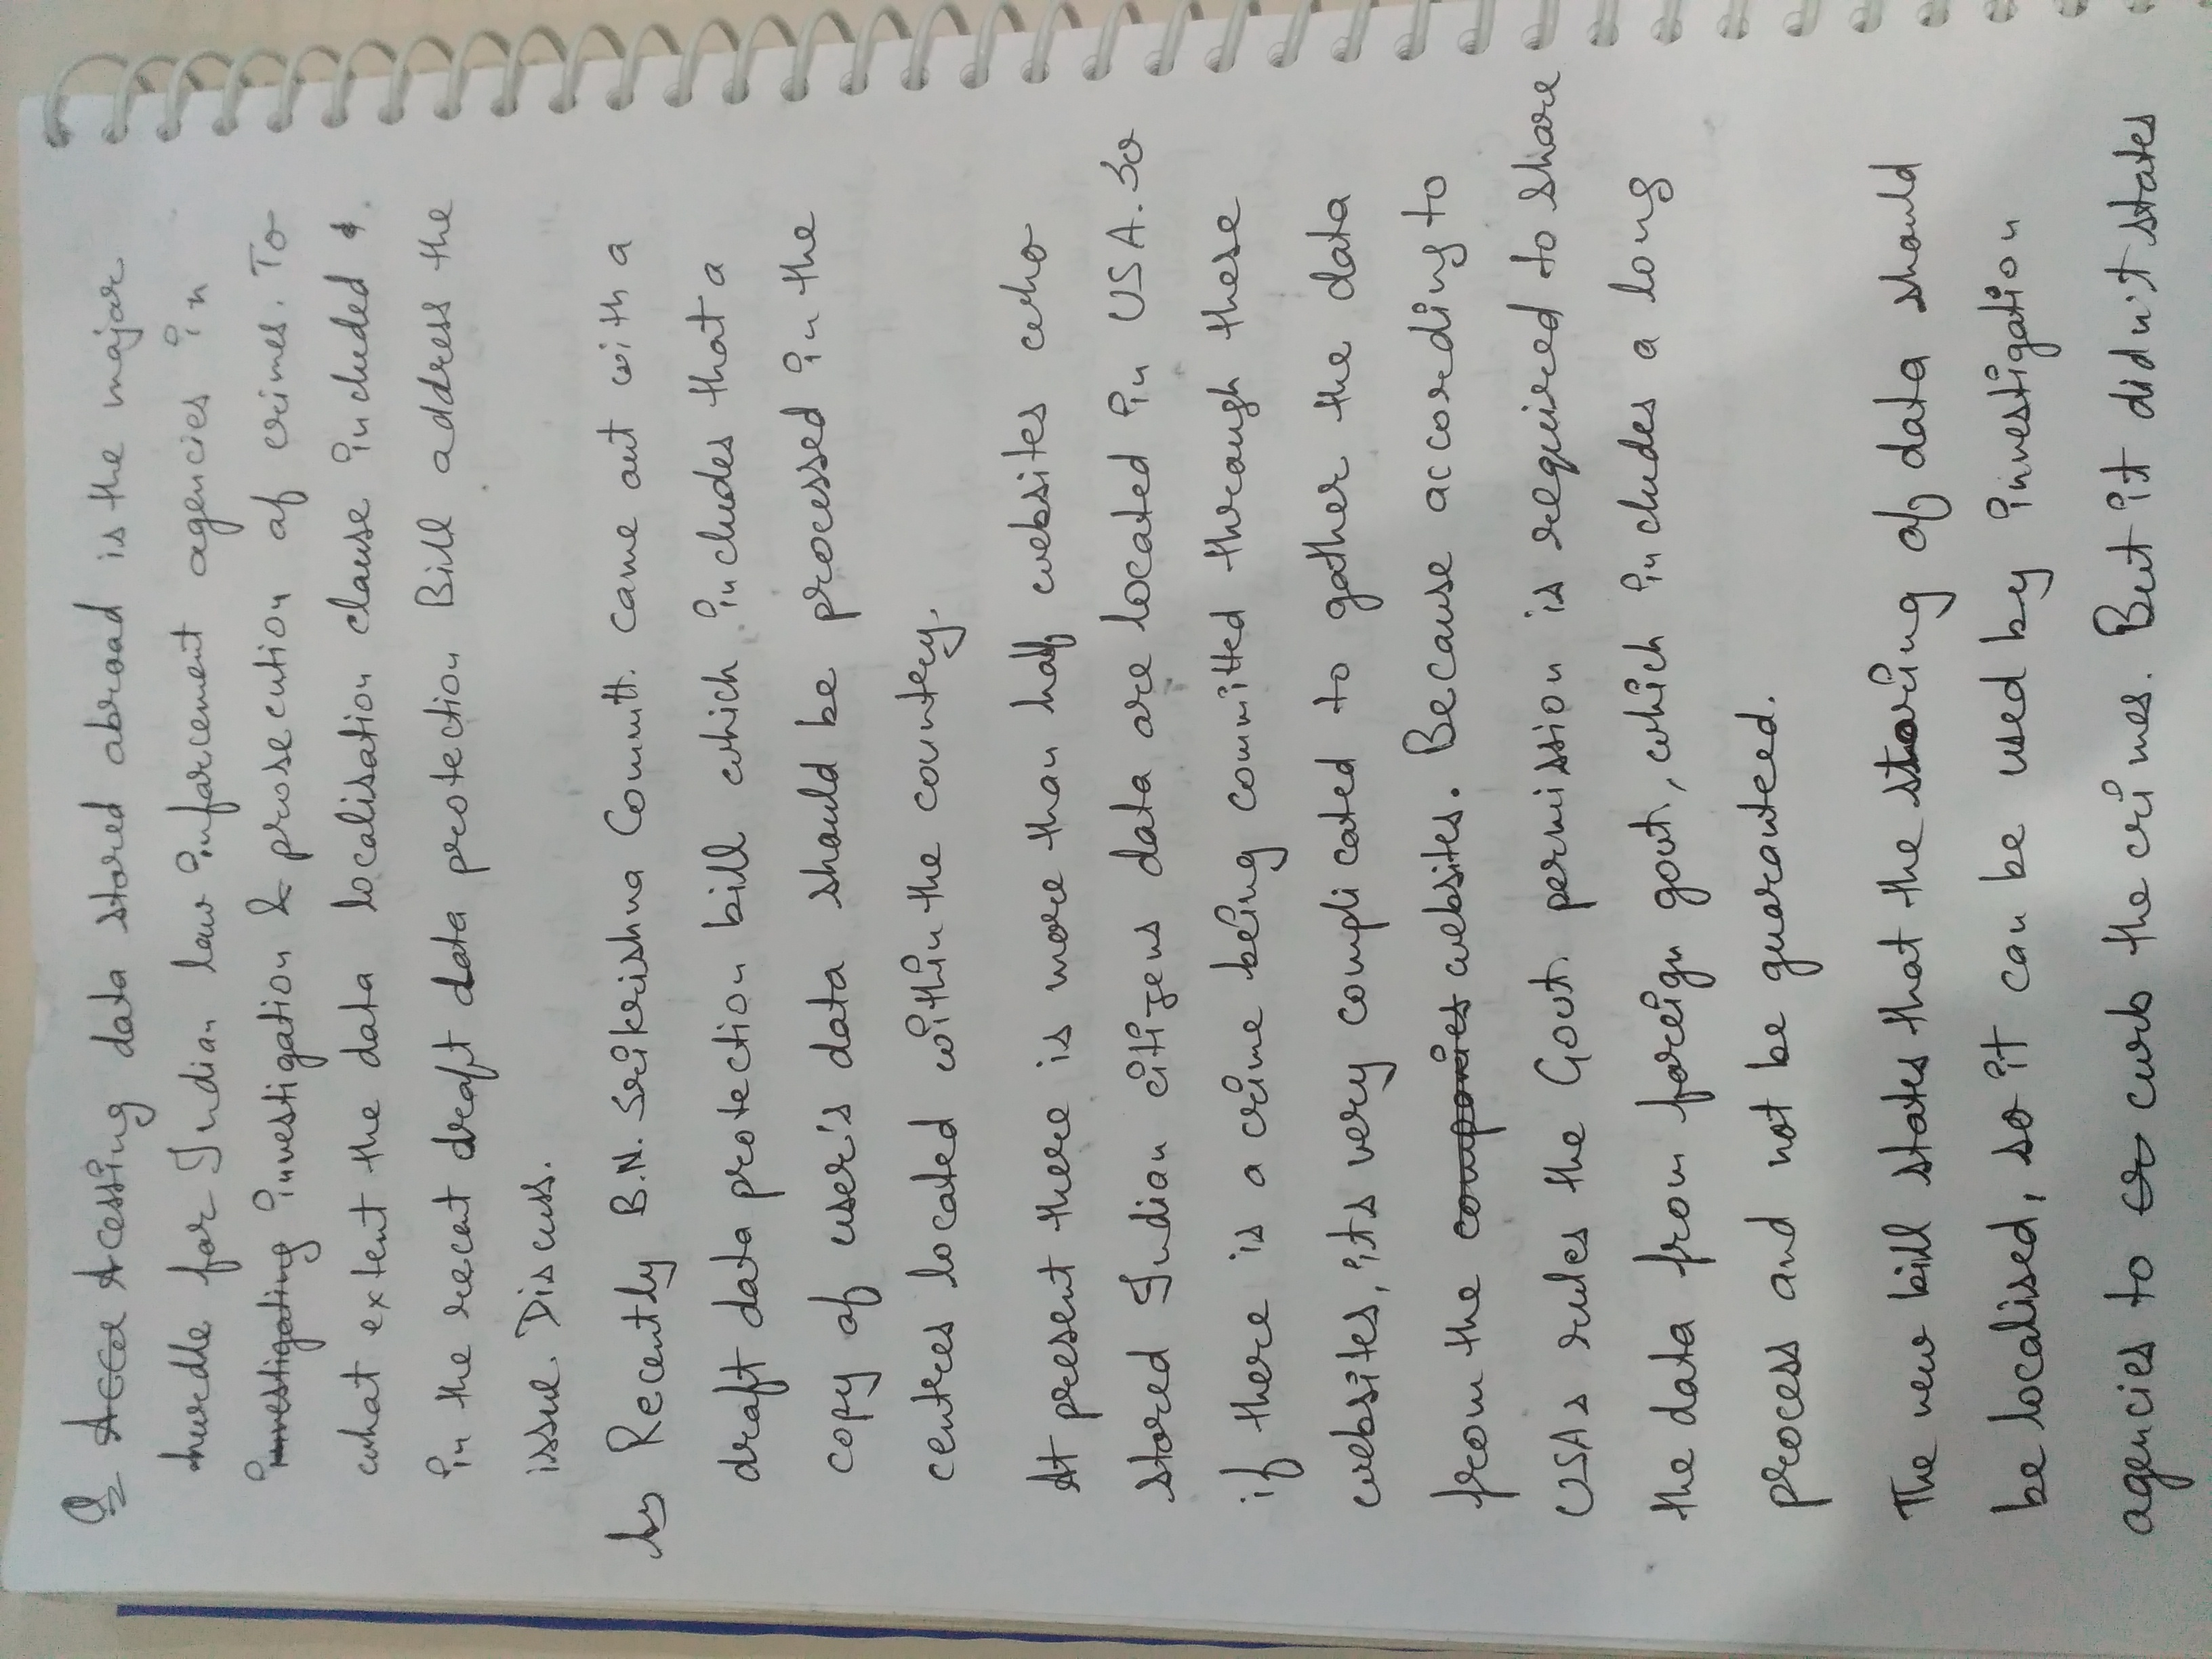 Q Acce Acessing data stored abroad is the major
hurdle for Indian law inforcement agencies in
investigating investigation & prosecution of crimes. To
what extent the data localisation clause included &
in the recent draft data protection Bill address the
issue. Discuss.
As Recently B.N. Srikrishna Committ. came out with a
draft data protection bill which includes that a
copy of user's data should be processed in the
centres located within the country.
At present there is more than half websites who
stored Indian citizens data are located in USA. So
if there is a crime being committed through these
websites, its very complicated to gather the data
from the companies websites. Because according to
USA's rules the Govt. permission is required to share
the data from foreign govt, which includes a long
process and not be guaranteed.
The new bill states that the storing of data should
be localised, so it can be used by investigation
agencies to cr curb the crimes. But it didn't states